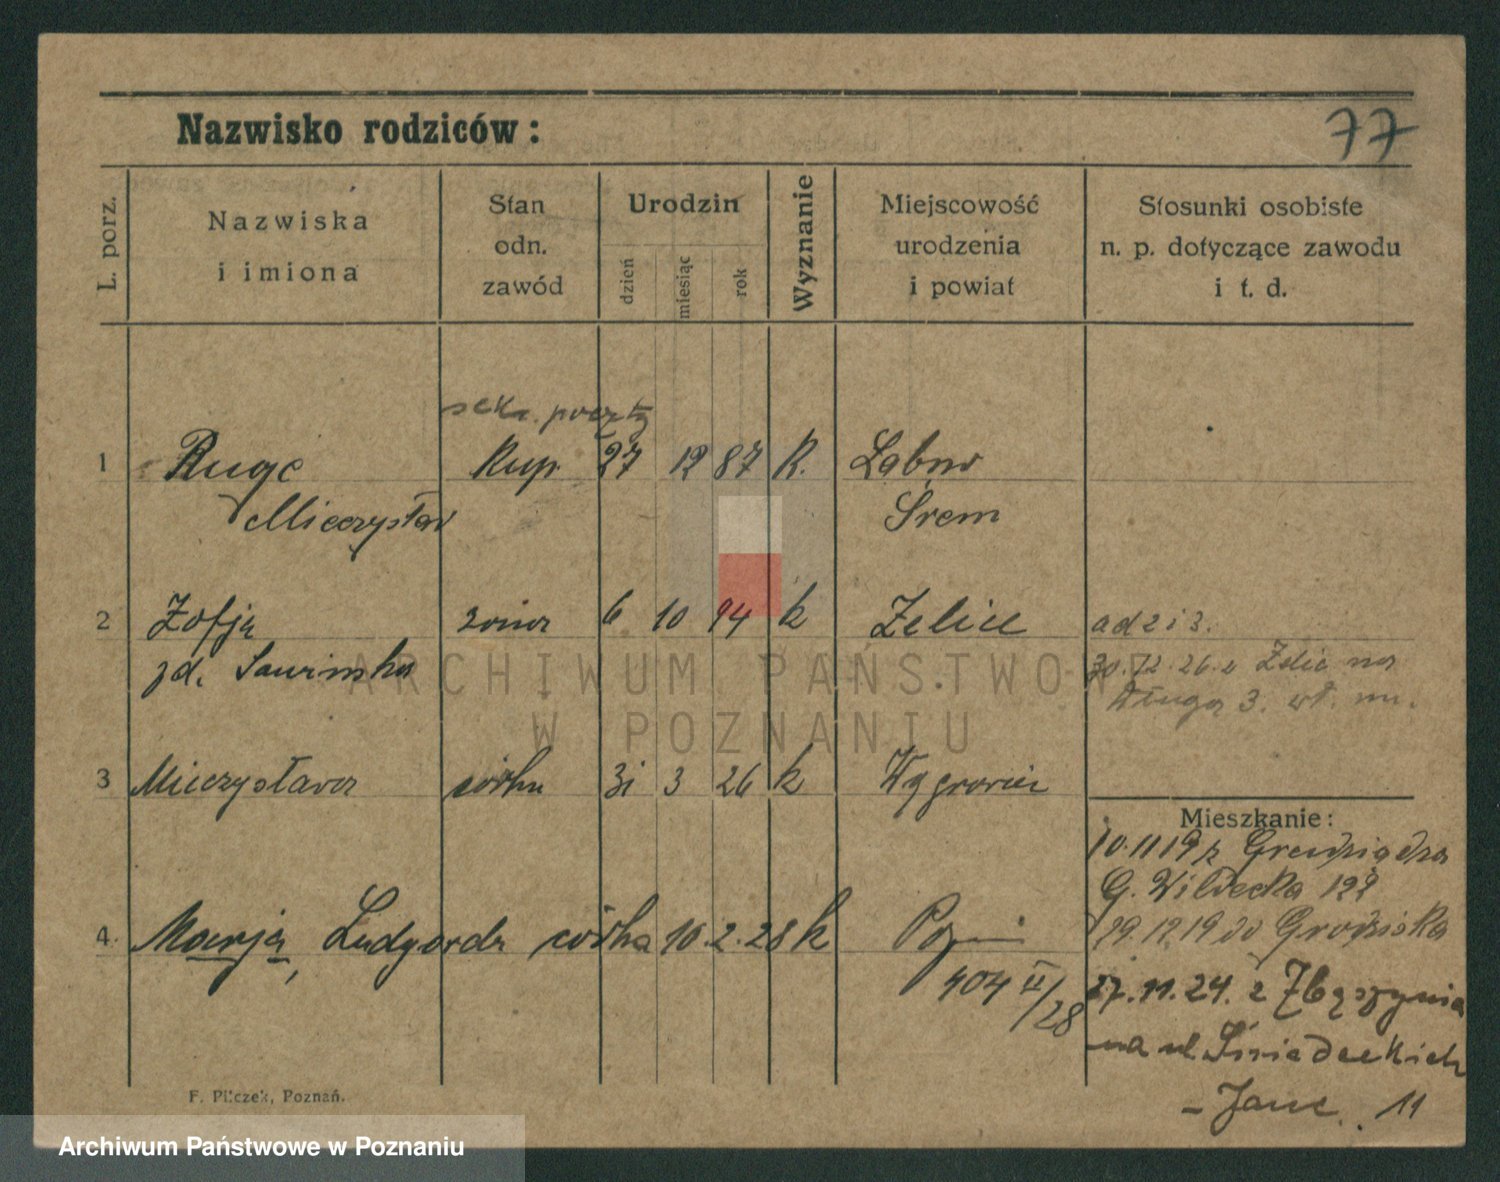 77
Nazwisko rodziców:
L. porz.
Nazwiska
i imiona
Stan
odn.
zawód
Urodzin
dzień
miesiąc
rok
Wyznanie
Miejscowość
urodzenia
i powiat
Stosunki osobiste
n. p. dotyczące zawodu
i t. d.
sekr. poczty
1 Ruge Kup 27 12 87 R.
Mieczysław Śrem
2 Zofja żona 6 10 94 k Żelice
zd.
30.12.26. z Żelic na
Długą 3.
3 Mieczysława córka 31 3 26 k Wągrowiec
Mieszkanie:
10.11 19 z Grudziądza
G. Wildecka
4. Marja, Ludgarda córka 10. 2. 28 k
29.12.19 do Grodziska
404 II/28
27.11.24. z Zbąszynia
na ul Śniadeckich
11
F. Pilczek, Poznań.
ARCHIWUM PAŃSTWOWE
W POZNANIU
Archiwum Państwowe w Poznaniu